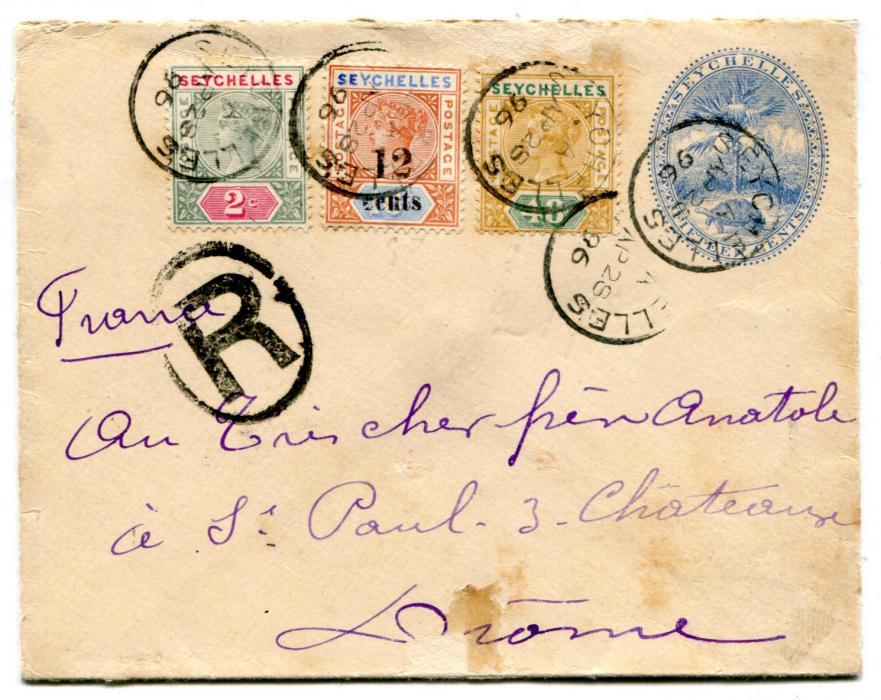 SEYCHELLES
POSTAGE
2c
SEYCHELLES
POSTAGE
12
cents
SEYCHELLES
POSTAGE
SEYCHELLES
FIFTEEN CENTS
SEYCHELLES
A
AP 28
96
R
France
Au Très cher frère Anatole
à St. Paul-3-Châteaux
Drôme